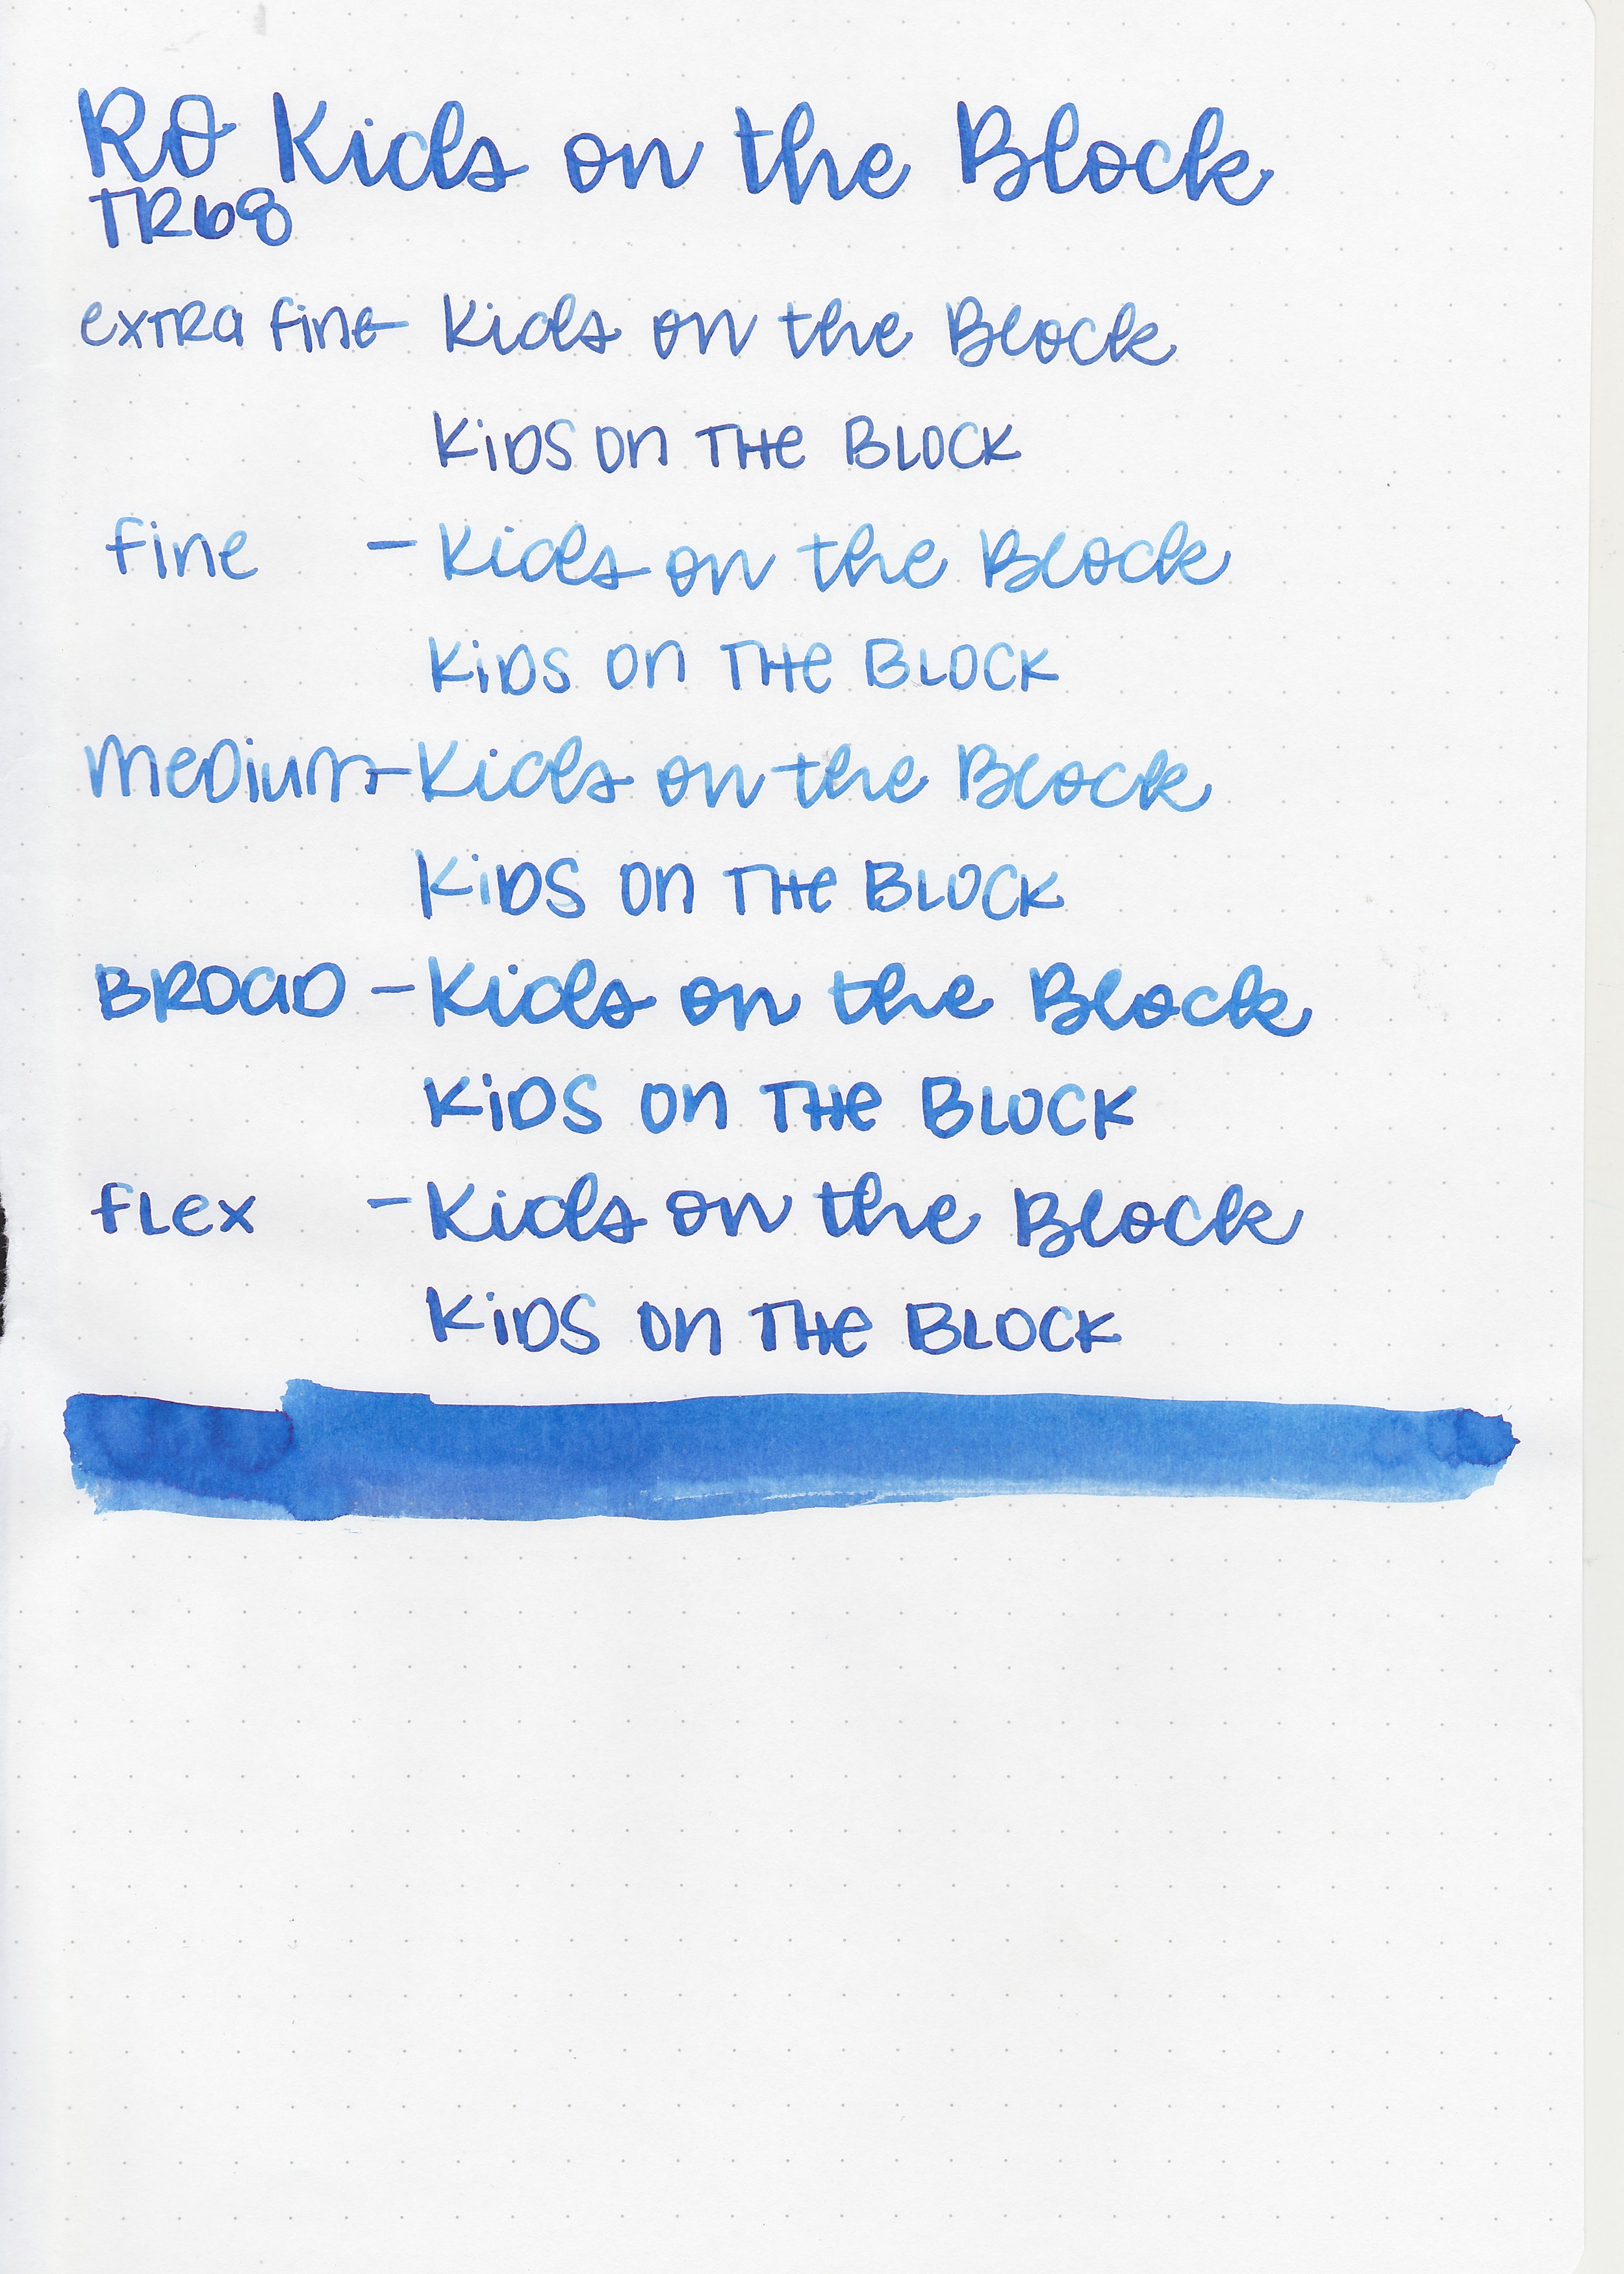 RO Kids on the Block
TR68
extra fine - Kids on the Block
KiDS on THe BLOCK
fine - Kids on the Block
KiDS on THe BLOCK
meDium - Kids on the Block
KiDS on THe BLOCK
BROaD - Kids on the Block
KiDS on THe BLOCK
fLex - Kids on the Block
KiDS on THe BLOCK